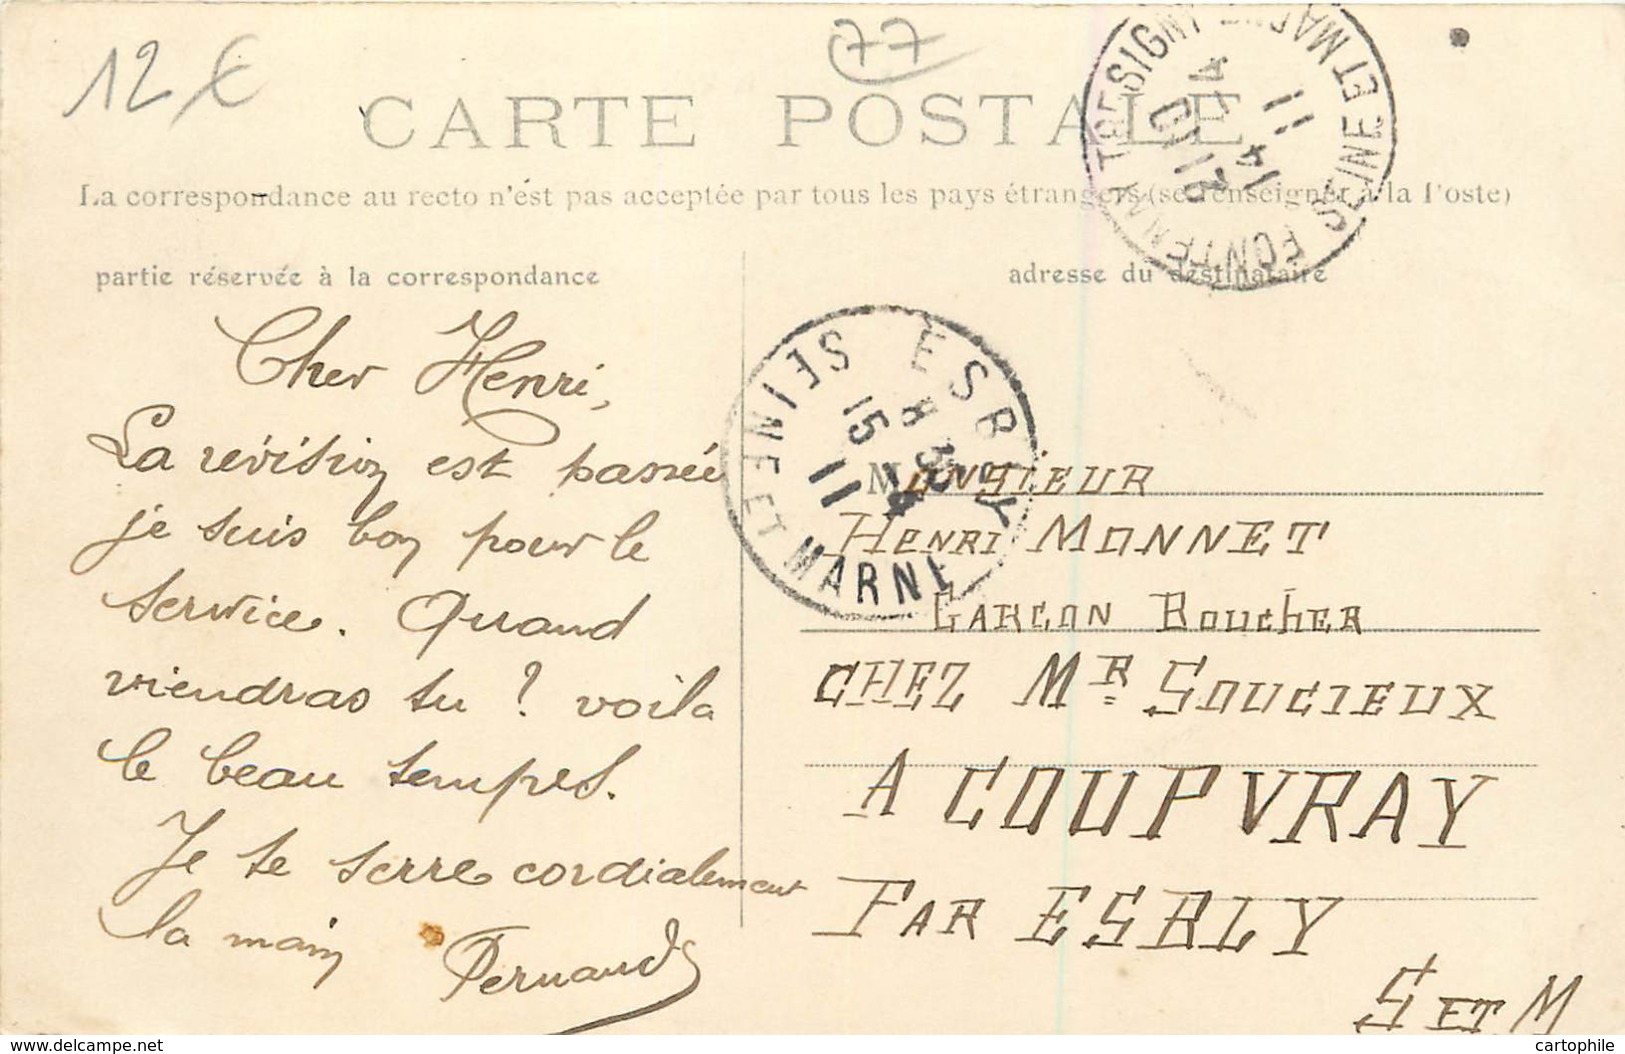 12 €
77
CARTE POSTALE
La correspondance au recto n'est pas acceptée par tous les pays étrangers (se renseigner à la Poste)
partie réservée à la correspondance
adresse du destinataire
FONTENAY TRESIGNY SEINE ET MARNE
14
11
ESBLY SEINE ET MARNE
8 30
15 4
11
Cher Henri,
La révision est passée
je suis bon pour le
service. Quand
viendras tu ? voila
le beau temps.
Je te serre cordialement
la main Fernand
Monsieur
Henri MONNET
Garçon Boucher
CHEZ Mr SOUCIEUX
A COUPVRAY
PAR ESBLY
S ET M
http://www.cartophilie.com
cartophile